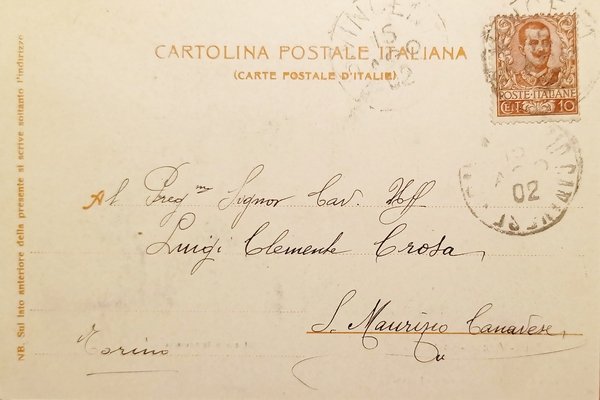 CARTOLINA POSTALE ITALIANA
(CARTE POSTALE D'ITALIE)
POSTE·ITALIANE
CENT. 10
15
02
02
CANAVESE
Al Preg.mo Signor Cav. Uff
Luigi Clemente Crosa
S. Maurizio Canavese
Torino
NB. Sul lato anteriore della presente si scrive soltanto l'indirizzo